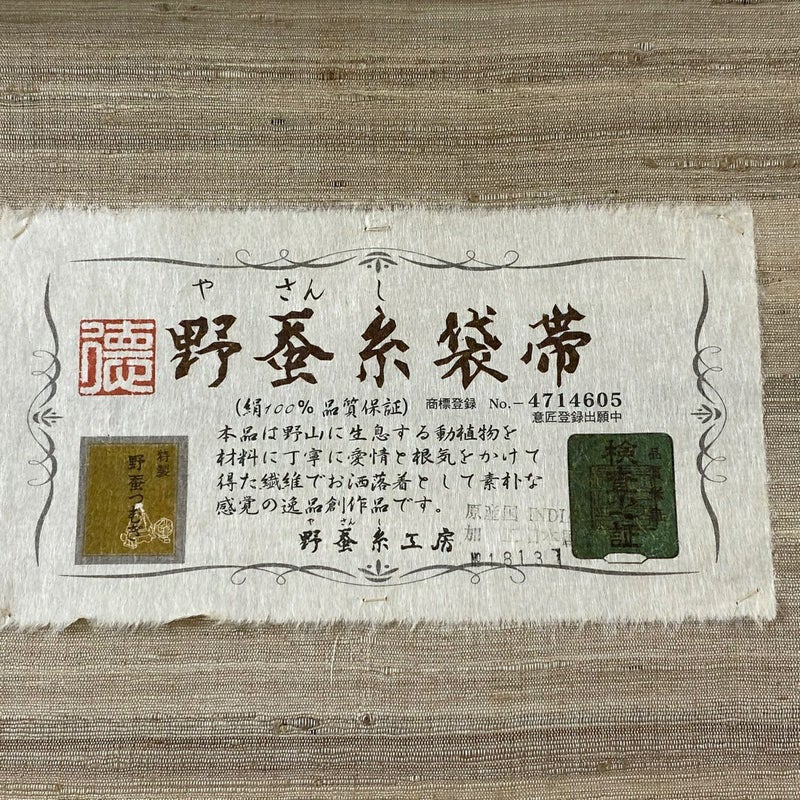 や さん し
徳 野蚕糸袋帯
(絹100% 品質保証) 商標登録 No.−4714605
意匠登録出願中
本品は野山に生息する動植物を
材料に丁寧に愛情と根気をかけて
得た繊維でお洒落着として素朴な
感覚の逸品創作品です。
や さん し
野蚕糸工房
特製
野蚕つむぎ
原産国 INDI
加
№18131
検査之証
品質